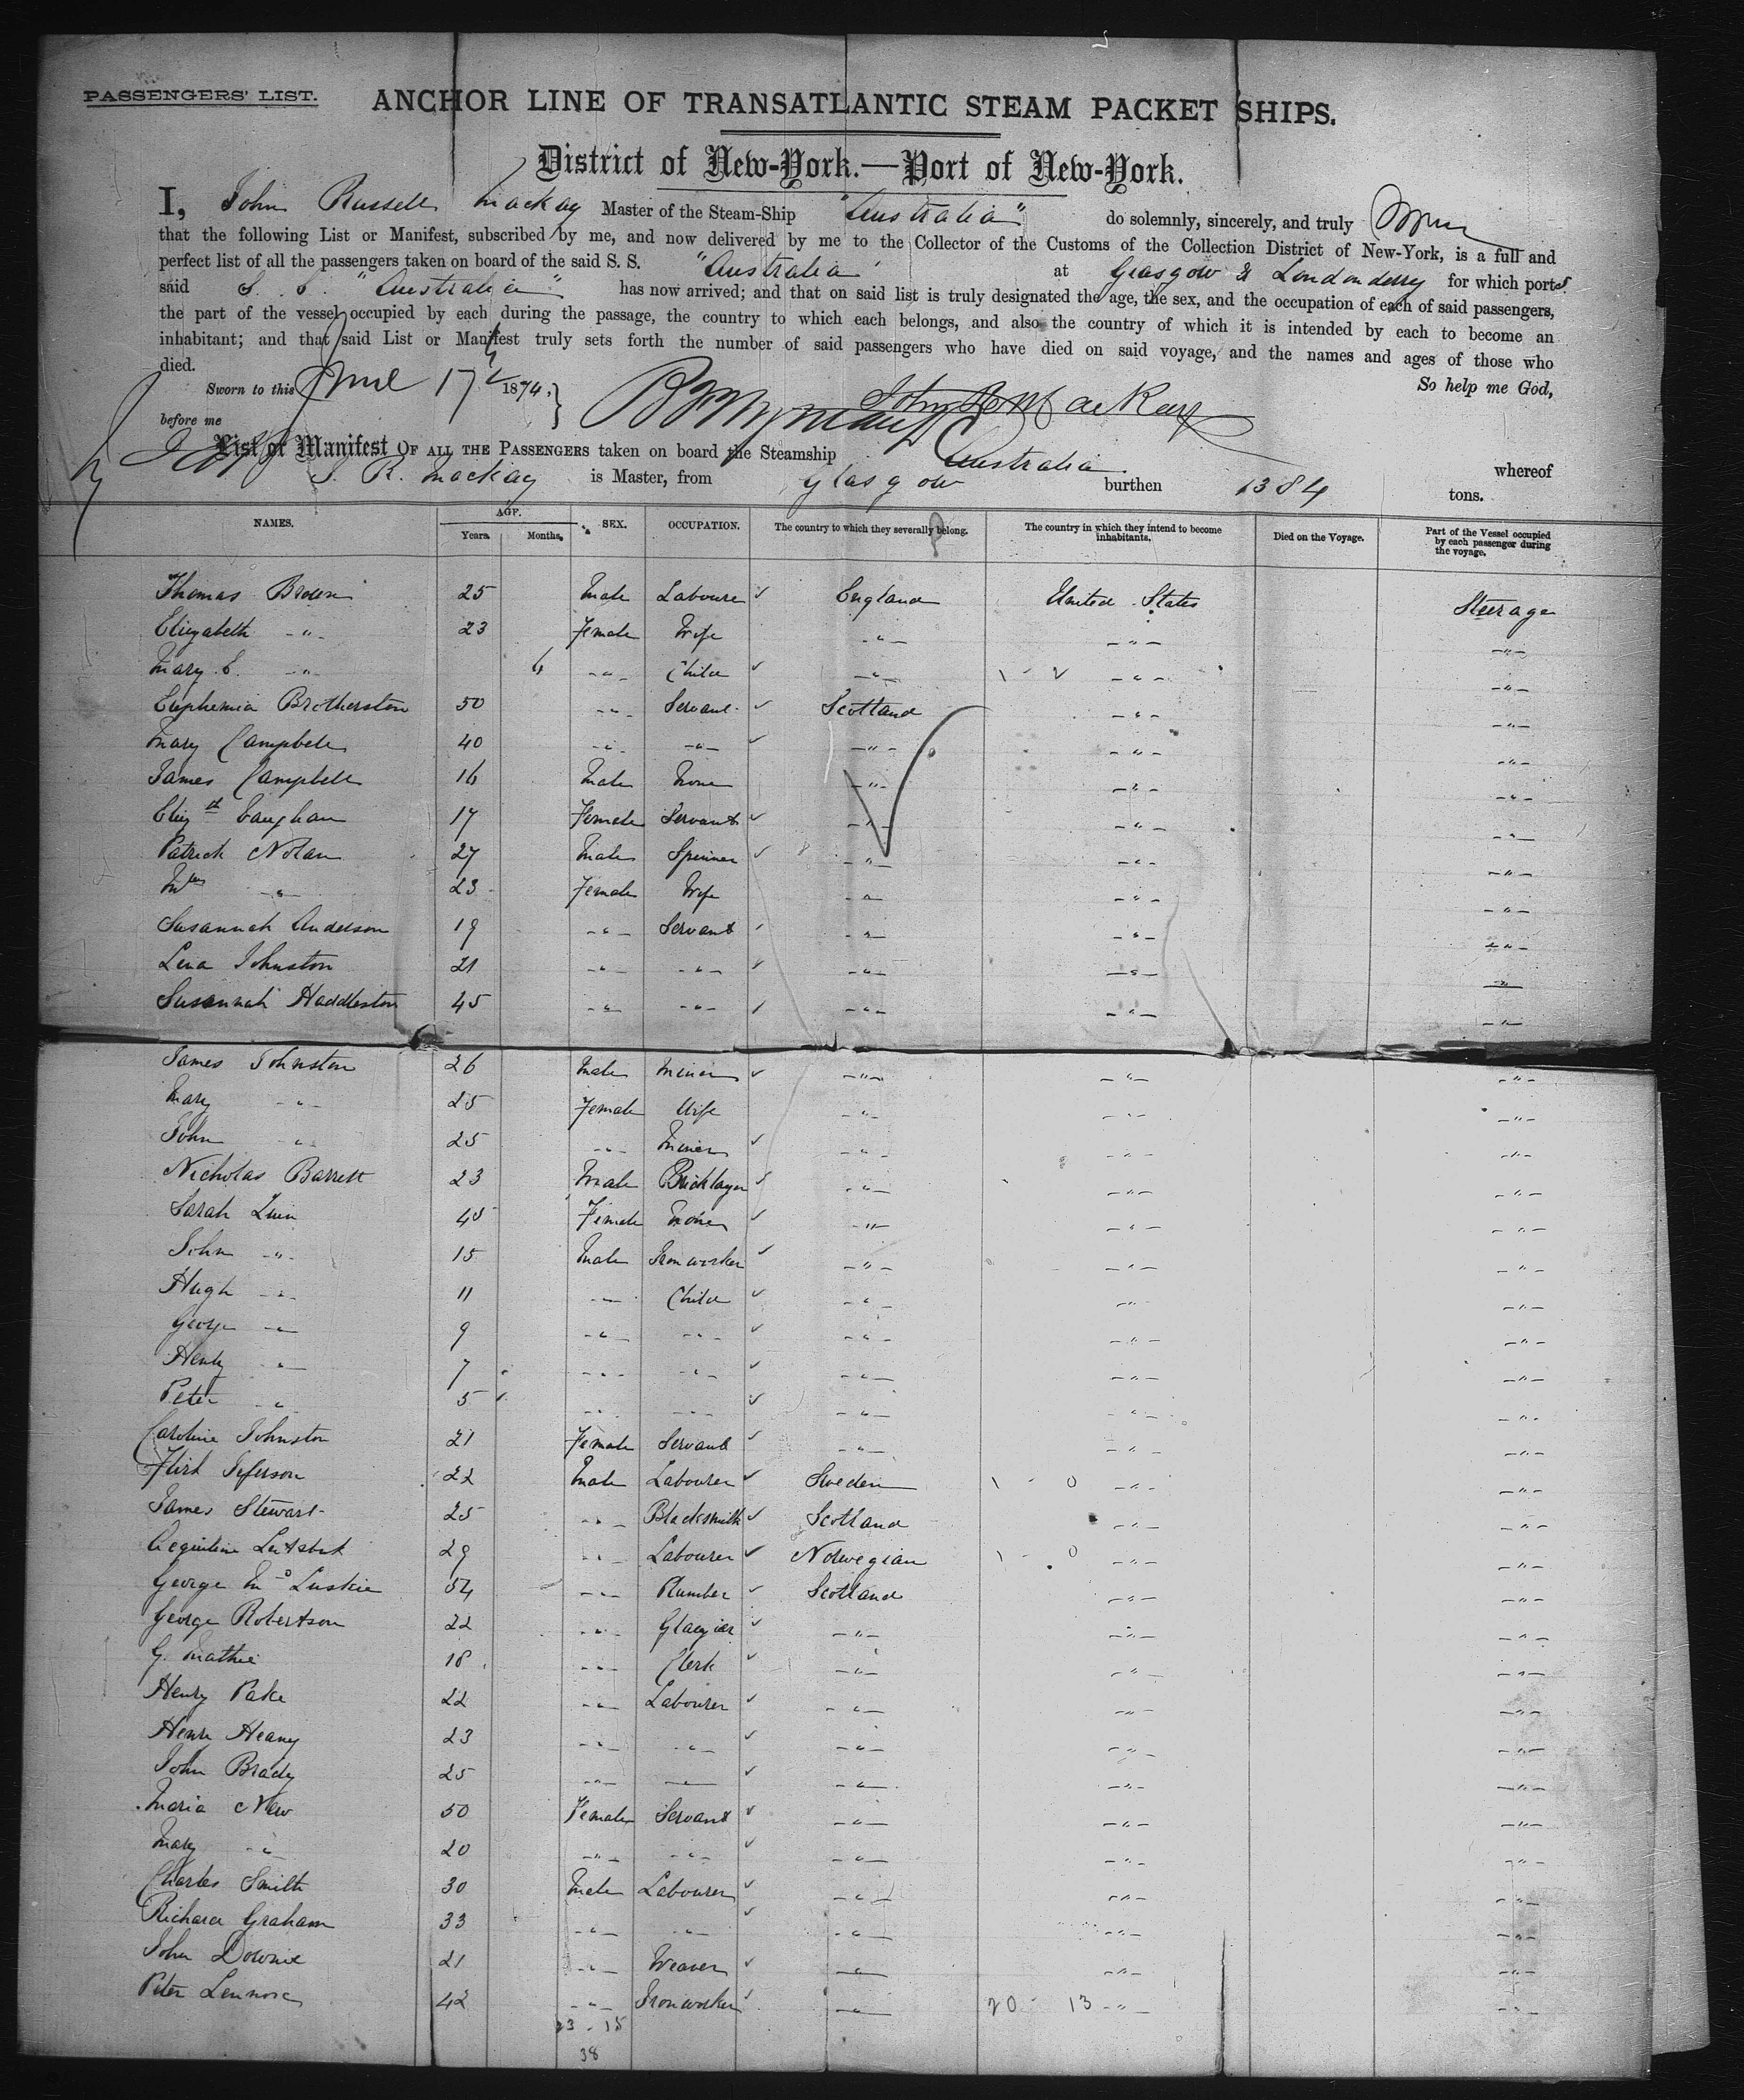 PASSENGERS' LIST.
ANCHOR LINE OF TRANSATLANTIC STEAM PACKET SHIPS.
District of New-York.—Port of New-York.
I, John Russell Mackay Master of the Steam-Ship "Australia" do solemnly, sincerely, and truly
that the following List or Manifest, subscribed by me, and now delivered by me to the Collector of the Customs of the Collection District of New-York, is a full and
perfect list of all the passengers taken on board of the said S. S. "Australia" at Glasgow & Londonderry for which ports
said S. S. "Australia" has now arrived; and that on said list is truly designated the age, the sex, and the occupation of each of said passengers,
the part of the vessel occupied by each during the passage, the country to which each belongs, and also the country of which it is intended by each to become an
inhabitant; and that said List or Manifest truly sets forth the number of said passengers who have died on said voyage, and the names and ages of those who
died.
So help me God,
Sworn to this June 17th 1874.
John R Mackay
before me
List or Manifest OF ALL THE PASSENGERS taken on board the Steamship Australia whereof
J. R. Mackay is Master, from Glasgow burthen 1384 tons.
NAMES. AGE. Years. Months. SEX. OCCUPATION. The country to which they severally belong. The country in which they intend to become inhabitants. Died on the Voyage. Part of the Vessel occupied by each passenger during the voyage.
Thomas Brown 25 Male Labourer England United States Steerage
Elizabeth " 23 Female Wife " " "
Mary " " Child " " "
Euphemia Brotherston 50 " Servant Scotland " "
Mary Campbell 40 " " " " "
James Campbell 16 Male None " " "
Elizth Vaughan 17 Female Servant " " "
Patrick Nolan 27 Male Spinner " " "
Mrs " 23 Female Wife " " "
Susannah Anderson 19 " Servant " " "
Lena Johnston 21 " " " " "
Susannah Haddleston 45 " " " " "
James Johnston 26 Male Miner " " "
Mary " 25 Female Wife " " "
John " 25 " Miner " " "
Nicholas Barrett 23 Male Bricklayer " " "
Sarah Quin 45 Female None " " "
John " 15 Male Ironworker " " "
Hugh " 11 " Child " " "
George " 9 " " " " "
Henry " 7 " " " " "
Peter " 5 " " " " "
Caroline Johnston 21 Female Servant " " "
22 Male Labourer Sweden " "
James Stewart 25 " Blacksmith Scotland " "
29 " Labourer Norwegian " "
George McLuskie 54 " Plumber Scotland " "
George Robertson 22 " Glazier " " "
G. Mathie 18 " Clerk " " "
Henry Pake 22 " Labourer " " "
Heany 23 " " " " "
John Brady 25 " " " " "
Maria New 50 Female Servant " " "
Mary " 20 " " " " "
Charles Smith 30 Male Labourer " " "
Richard Graham 33 " " " " "
John Downie 21 " Weaver " " "
Peter Lennox 42 " Ironworker " 20 - 13 " "
23 - 15
38